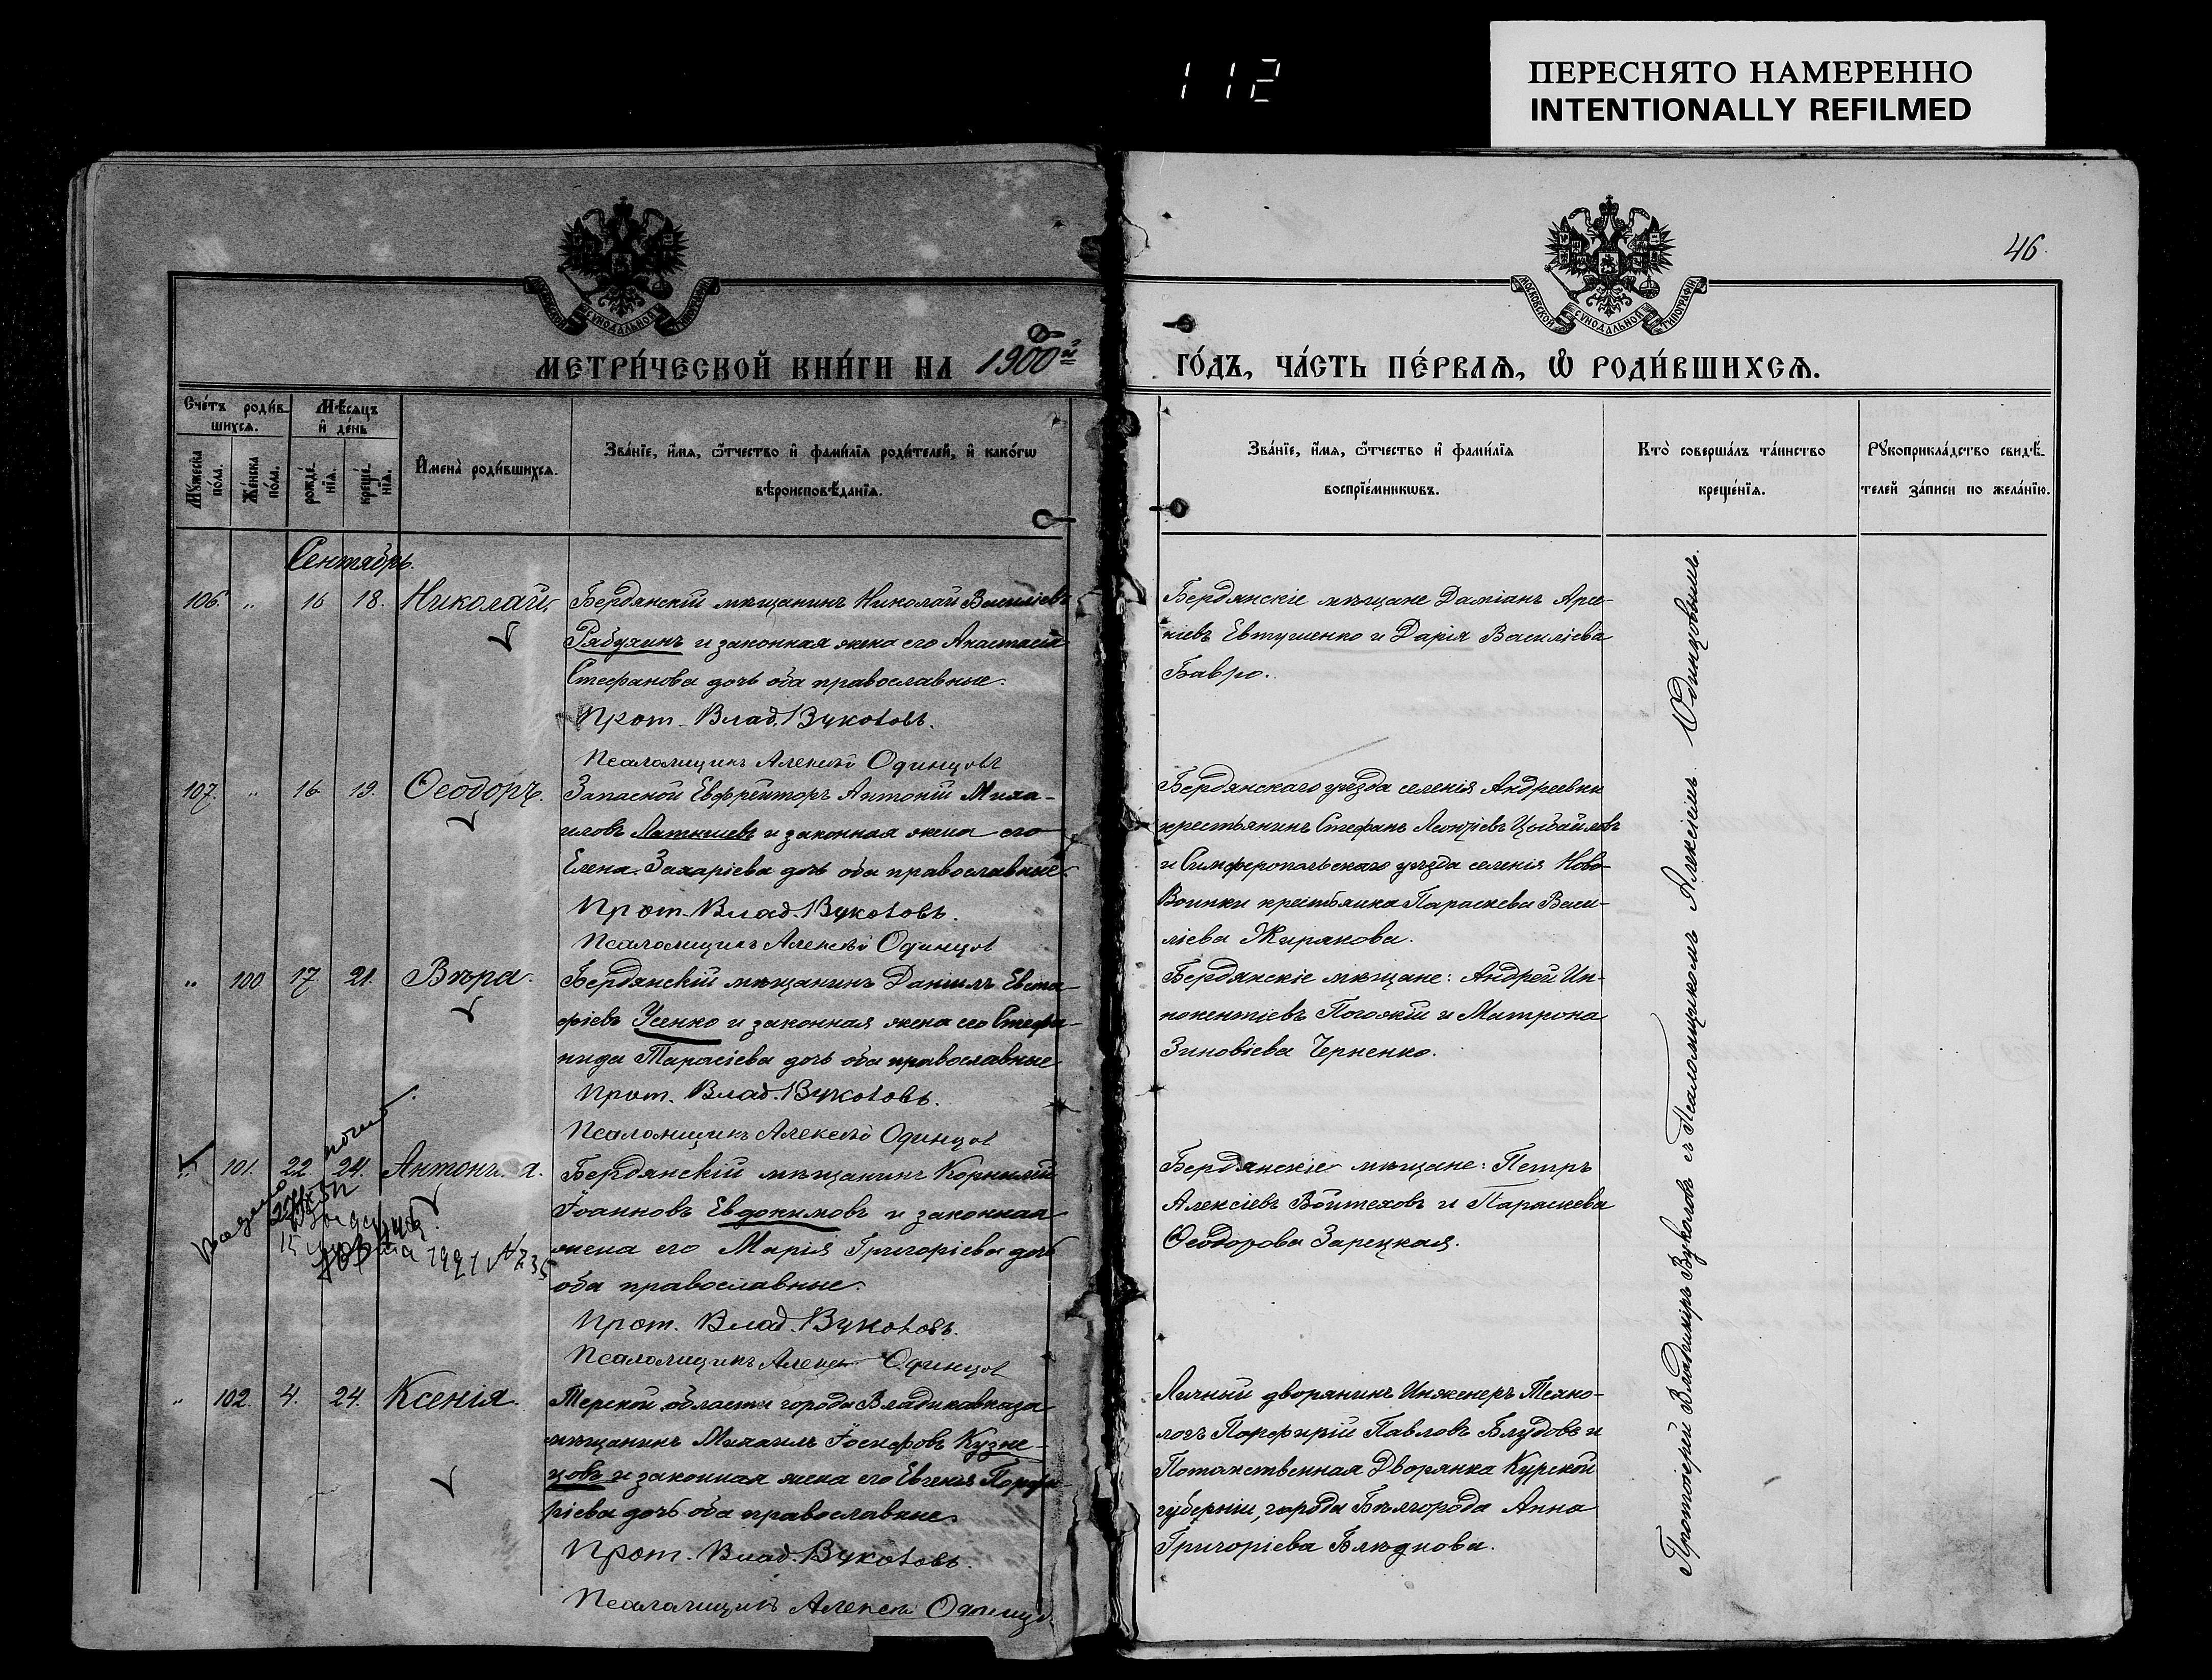 112
ПЕРЕСНЯТО НАМЕРЕННО
INTENTIONALLY REFILMED
46.
МОСКОВСКОЙ СѴНОДАЛЬНОЙ ТИПОГРАФІИ
МОСКОВСКОЙ СѴНОДАЛЬНОЙ ТИПОГРАФІИ
МЕТРИ́ЧЕСКОЙ КНИ́ГИ НА 1900й
ГО́ДЪ, ЧА́СТЬ ПЕ́РВАЯ, Ѿ РОДИ́ВШИХСЯ.
Сче́тъ роди́в-
шихся.
Му́жеска по́ла.
Же́нска по́ла.
Мѣ́сяцъ
и҆ де́нь
рожде́нїя.
креще́нїя.
И҆мена̀ роди́вшихся.
Зва́нїе, и҆́мя, ѻ҆́тчество и҆ фами́лїя роди́телей, и҆ како́гѡ
вѣроисповѣ́данїя.
Зва́нїе, и҆́мя, ѻ҆́тчество и҆ фами́лїя
воспрїе́мникѡвъ.
Кто̀ соверша́лъ та́инство
креще́нїя.
Рꙋкоприкла́дство свидѣ́-
телей за́писи по жела́нїю.
Сентябрь.
106. „ 16 18. Николай
Бердянскій мѣщанинъ Николай Василіевъ
Рябухинъ и законная жена его Анастасія
Стефанова дочь оба православные.
Прот. Влад. Вуколовъ.
Псаломщикъ Алексѣй Одинцовъ
Бердянскіе мѣщане Даміанъ
Евтушенко и Дарія Василіева
Бавро.
107. „ 16 19. Ѳеодоръ.
Запасной Евфрейторъ Антоній Миха-
иловъ и законная жена его
Елена Захаріева дочь оба православные
Прот. Влад. Вуколовъ.
Псаломщикъ Алексѣй Одинцов
Бердянскаго уѣзда селенія Андреевки
крестьянинъ Стефанъ Леонтіевъ
и Симферопольскаго уѣзда селенія Ново-
крестьянка Параскева Васи-
ліева Жирякова.
„ 100 17 21. Вѣра.
Бердянскій мѣщанинъ Даніилъ Евста-
фіевъ Усенко и законная жена его Стефа-
нида Тарасіева дочь оба православные
Прот. Влад. Вуколовъ.
Псаломщикъ Алексѣй Одинцов
Бердянскіе мѣщане: Андрей Ин-
нокентіевъ и Матрона
Зиновіева Черненко.
101. 22. 24. Антонина.
Бердянскій мѣщанинъ Корнилій
Іоанновъ Евдокимовъ и законная
жена его Марія Григоріева дочь
оба православные.
Прот. Влад. Вуколовъ.
Псаломщикъ Алексѣй Одинцов
Бердянскіе мѣщане: Петръ
Алексіевъ Войтеховъ и Параскева
Ѳеодорова Зарецкая.
„ 102. 4. 24. Ксенія.
Терской области города Владикавказа
мѣщанинъ Михаилъ Іосифовъ Кузне-
цовъ и законная жена его Евгенія Порфи-
ріева дочь оба православные
Прот. Влад. Вуколовъ.
Псаломщикъ Алексѣй Одинцов
Личный дворянинъ Инженеръ Техно-
логъ Порфирій Павловъ Блудовъ и
Потомственная Дворянка Курской
губерніи, города Бѣлгорода Анна
Григоріева Блѣднова.
Протоіерей Владиміръ Вуколовъ съ Псаломщикомъ Алексіемъ Одинцовымъ.